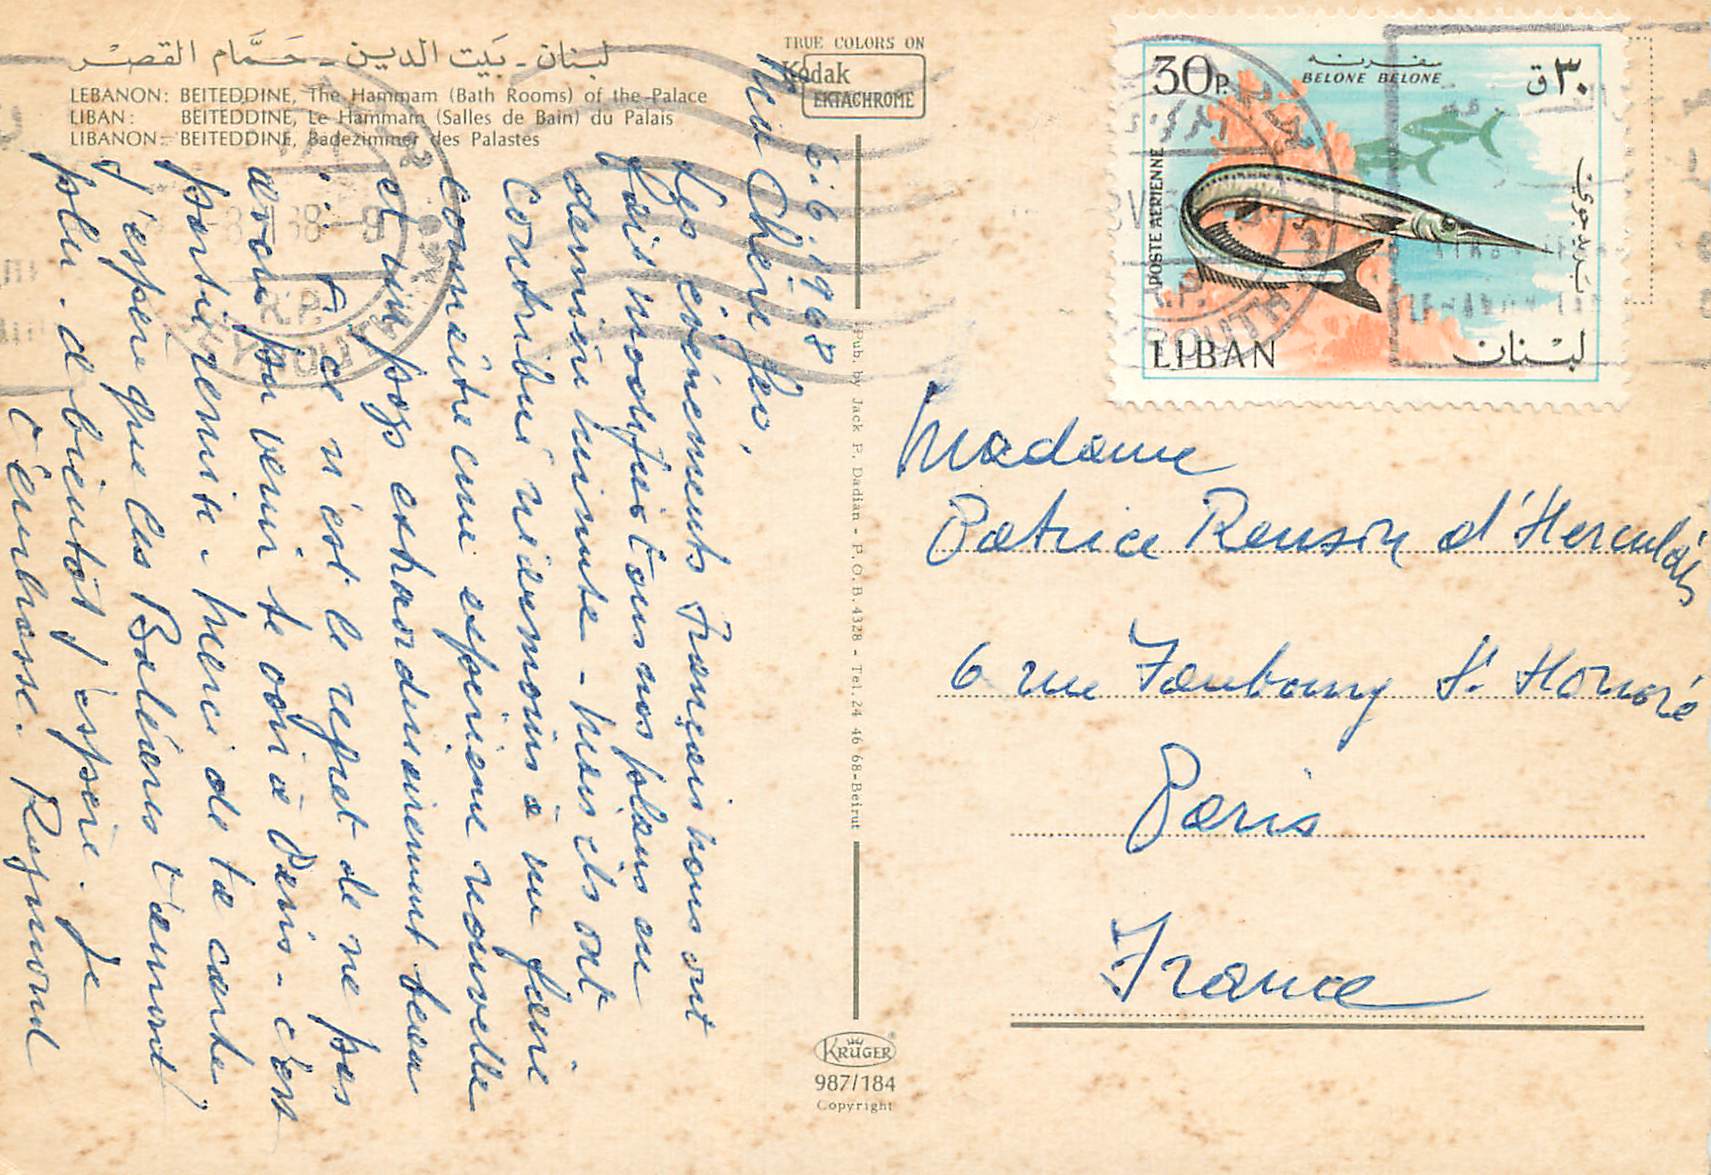 لبنان - بَيت الدين - حَمَّام القصر
LEBANON: BEITEDDINE, The Hammam (Bath Rooms) of the Palace
LIBAN : BEITEDDINE, Le Hammam (Salles de Bain) du Palais
LIBANON: BEITEDDINE, Badezimmer des Palastes
TRUE COLORS ON
Kodak
EKTACHROME
6.6.1968
Ma Chère
Les événements Français nous ont
fais modifier tous nos plans en
dernière minute - mais ils ont
contribué néanmoins à me faire
connaître une expérience nouvelle
et un pays extraordinairement beau
! Ce n'est le regret de ne pas
avoir pu venir te voir à Paris - c'est
partie remise - Merci de ta carte
J'espère que les Baléares t'auront
plu. à bientôt j'espère. Je
t'embrasse. Raymond
Pub. by Jack P. Dadian - P.O.B. 4328 - Tel. 24 46 68-Beirut
KRÜGER
987/184
Copyright
30P.
سفرنة
BELONE BELONE
٣٠ق
POSTE AERIENNE
بريد جوي
LIBAN
لبنان
R.P.
BEYROUTH
Madame
Patrice Renson d'Herculais
6 rue Faubourg St Honoré
Paris
France